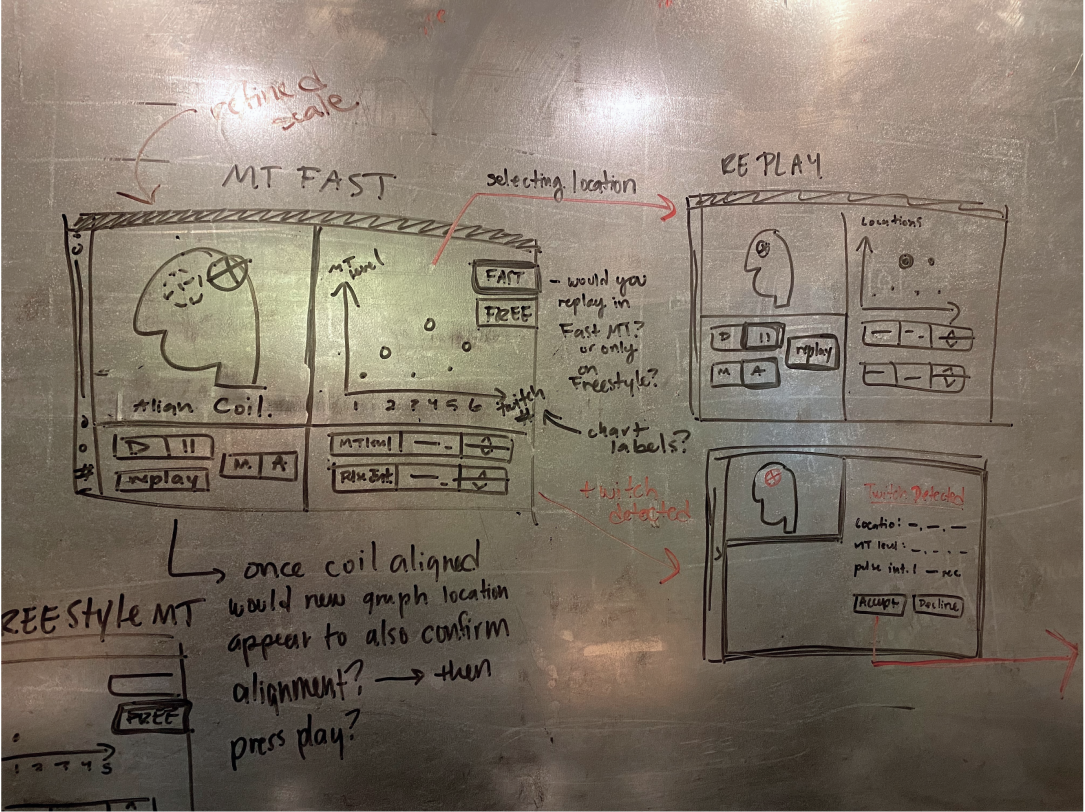 refined
scale
MT FAST
selecting location
REPLAY
MT level
FAST
FREE
- would you
replay in
Fast MT?
or only
on
Freestyle?
Locations
1 2 3 4 5 6 twitch
#
Align Coil.
chart
labels?
MT level
replay
M A
replay
M A
+ twitch
detected
Twitch Detected
Locatio:
MT level:
pulse int.
sec
Accept Decline
once coil aligned
would new graph location
appear to also confirm
alignment? → then
press play?
REEStyle MT
FREE
1 2 3 4 5